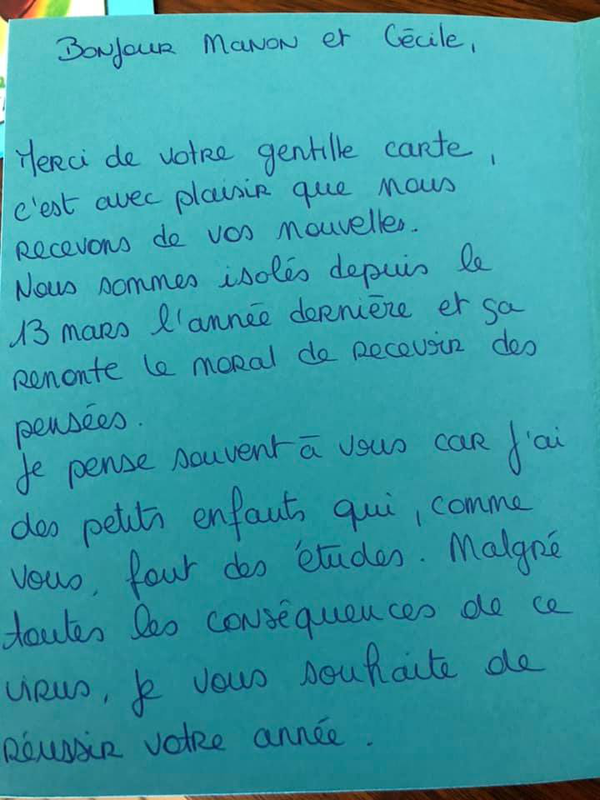 Bonjour Manon et Cécile,
Merci de votre gentille carte,
c'est avec plaisir que nous
recevons de vos nouvelles.
Nous sommes isolés depuis le
13 mars l'année dernière et sa
remonte le moral de recevoir des
pensées.
Je pense souvent à vous car j'ai
des petits enfants qui, comme
vous, font des études. Malgré
toutes les conséquences de ce
virus, je vous souhaite de
réussir votre année.